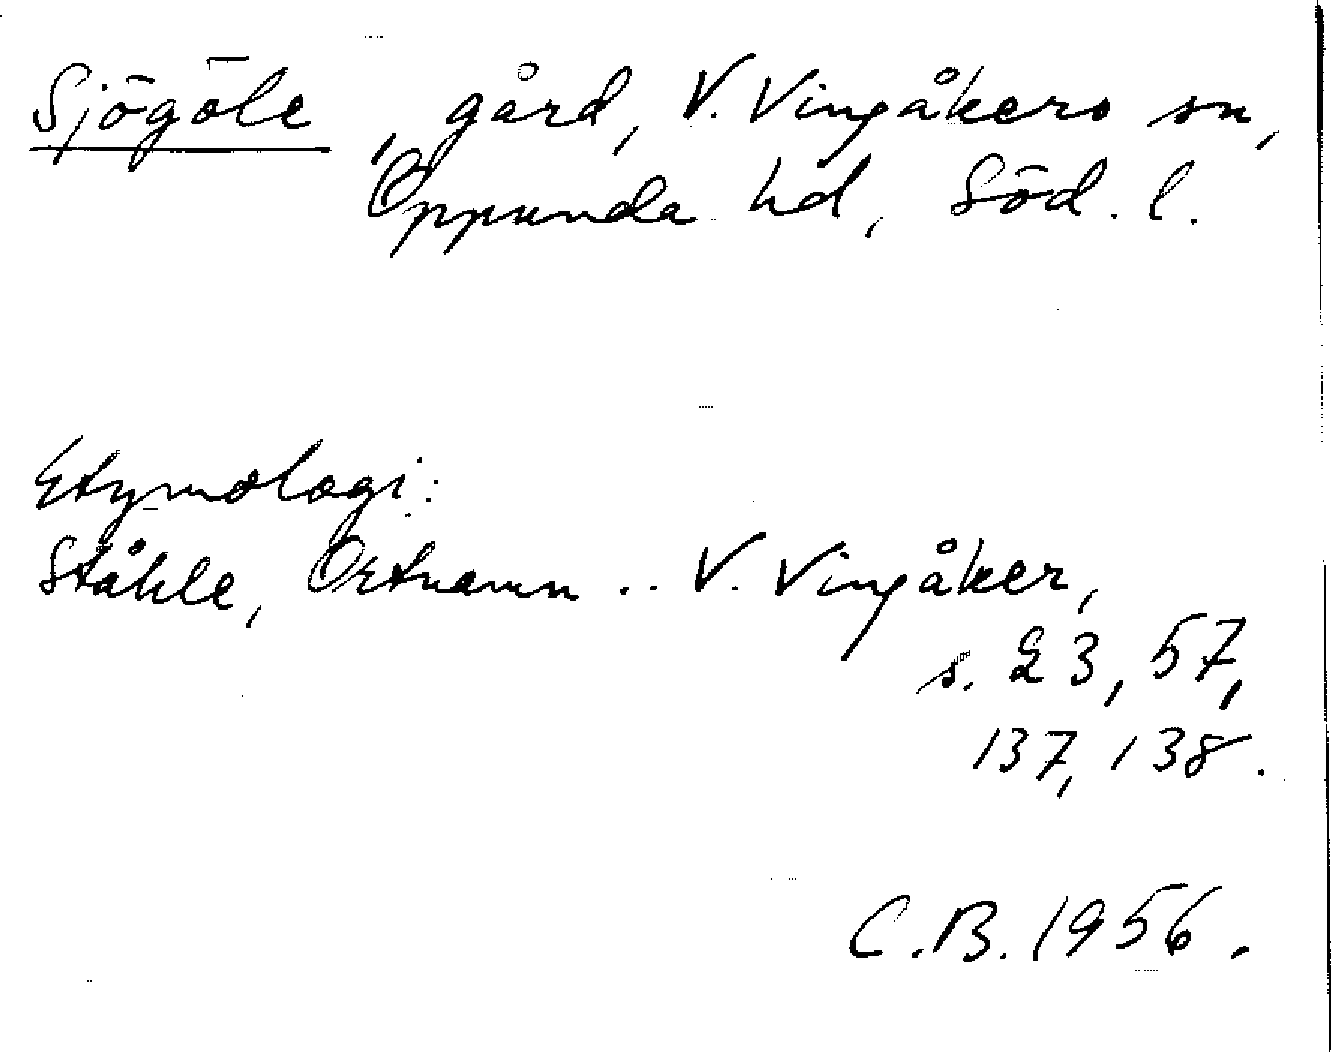 Sjögöle, gård, V. Vingåkers sn,
Oppunda hd, Söd. l.
Etymologi:
Ståhle, Ortnamn .. V. Vingåker,
s. 23, 57,
137, 138.
C.B. 1956.